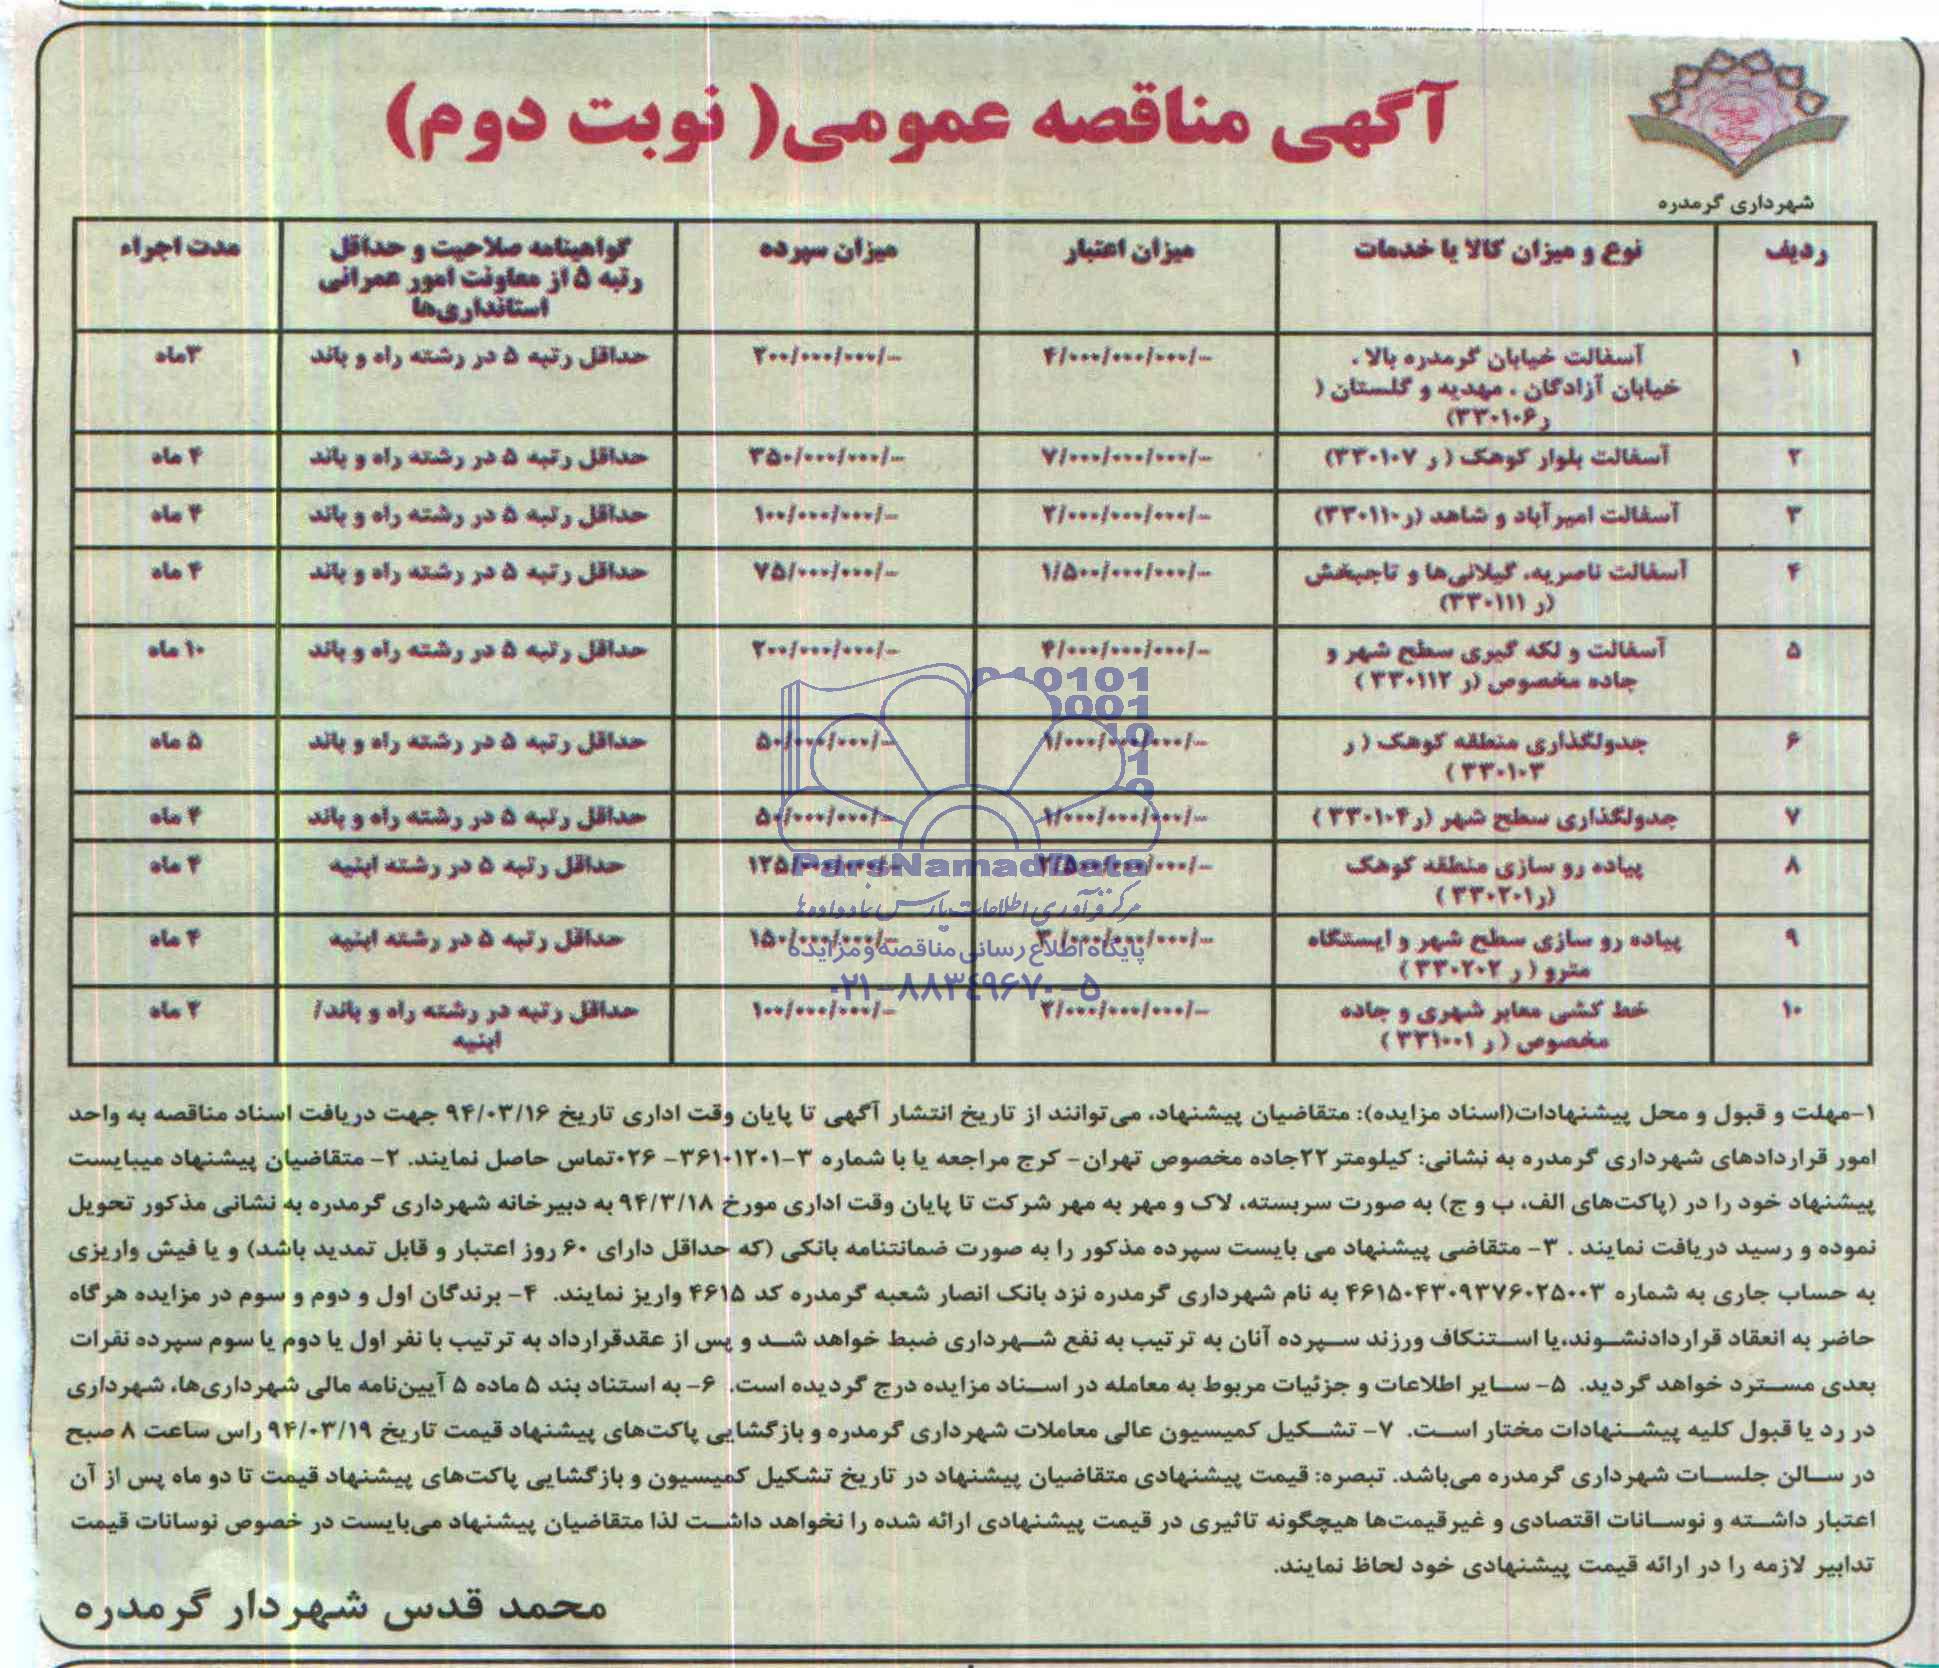 آگهی مناقصه عمومی( نوبت دوم)
شهرداری گرمدره
ردیف	نوع و میزان کالا یا خدمات	میزان اعتبار	میزان سپرده	گواهینامه صلاحیت و حداقل رتبه ۵ از معاونت امور عمرانی استانداری‌ها	مدت اجراء
۱	آسفالت خیابان گرمدره بالا ، خیابان آزادگان ، مهدیه و گلستان ( ر ۳۳۰۱۰۶)	۴/۰۰۰/۰۰۰/۰۰۰/-	۲۰۰/۰۰۰/۰۰۰/-	حداقل رتبه ۵ در رشته راه و باند	۳ماه
۲	آسفالت بلوار کوهک ( ر ۳۳۰۱۰۷)	۷/۰۰۰/۰۰۰/۰۰۰/-	۳۵۰/۰۰۰/۰۰۰/-	حداقل رتبه ۵ در رشته راه و باند	۴ ماه
۳	آسفالت امیرآباد و شاهد (ر ۳۳۰۱۱۰)	۲/۰۰۰/۰۰۰/۰۰۰/-	۱۰۰/۰۰۰/۰۰۰/-	حداقل رتبه ۵ در رشته راه و باند	۴ ماه
۴	آسفالت ناصریه، گیلانی‌ها و تاجبخش (ر ۳۳۰۱۱۱)	۱/۵۰۰/۰۰۰/۰۰۰/-	۷۵/۰۰۰/۰۰۰/-	حداقل رتبه ۵ در رشته راه و باند	۴ ماه
۵	آسفالت و لکه گیری سطح شهر و جاده مخصوص (ر ۳۳۰۱۱۲ )	۴/۰۰۰/۰۰۰/۰۰۰/-	۲۰۰/۰۰۰/۰۰۰/-	حداقل رتبه ۵ در رشته راه و باند	۱۰ ماه
۶	جدولگذاری منطقه کوهک ( ر ۳۳۰۱۰۳ )	۱/۰۰۰/۰۰۰/۰۰۰/-	۵۰/۰۰۰/۰۰۰/-	حداقل رتبه ۵ در رشته راه و باند	۵ ماه
۷	جدولگذاری سطح شهر (ر ۳۳۰۱۰۴ )	۱/۰۰۰/۰۰۰/۰۰۰/-	۵۰/۰۰۰/۰۰۰/-	حداقل رتبه ۵ در رشته راه و باند	۴ ماه
۸	پیاده رو سازی منطقه کوهک (ر ۳۳۰۲۰۱ )	۲/۵۰۰/۰۰۰/۰۰۰/-	۱۲۵/۰۰۰/۰۰۰/-	حداقل رتبه ۵ در رشته ابنیه	۴ ماه
۹	پیاده رو سازی سطح شهر و ایستگاه مترو ( ر ۳۳۰۲۰۲ )	۳/۰۰۰/۰۰۰/۰۰۰/-	۱۵۰/۰۰۰/۰۰۰/-	حداقل رتبه ۵ در رشته ابنیه	۴ ماه
۱۰	خط کشی معابر شهری و جاده مخصوص ( ر ۳۳۱۰۰۱ )	۲/۰۰۰/۰۰۰/۰۰۰/-	۱۰۰/۰۰۰/۰۰۰/-	حداقل رتبه در رشته راه و باند/ ابنیه	۲ ماه
ParsNamadData
مرکز فرآوری اطلاعات پارس نماد داده‌ها
پایگاه اطلاع رسانی مناقصه و مزایده
۰۲۱-۸۸۳۴۹۶۷۰-۵
۱-مهلت و قبول و محل پیشنهادات(اسناد مزایده): متقاضیان پیشنهاد، می‌توانند از تاریخ انتشار آگهی تا پایان وقت اداری تاریخ ۹۴/۰۳/۱۶ جهت دریافت اسناد مناقصه به واحد
امور قراردادهای شهرداری گرمدره به نشانی: کیلومتر۲۲جاده مخصوص تهران- کرج مراجعه یا با شماره ۳-۳۶۱۰۱۲۰۱- ۰۲۶تماس حاصل نمایند. ۲- متقاضیان پیشنهاد میبایست
پیشنهاد خود را در (پاکت‌های الف، ب و ج) به صورت سربسته، لاک و مهر به مهر شرکت تا پایان وقت اداری مورخ ۹۴/۳/۱۸ به دبیرخانه شهرداری گرمدره به نشانی مذکور تحویل
نموده و رسید دریافت نمایند . ۳- متقاضی پیشنهاد می بایست سپرده مذکور را به صورت ضمانتنامه بانکی (که حداقل دارای ۶۰ روز اعتبار و قابل تمدید باشد) و یا فیش واریزی
به حساب جاری به شماره ۴۶۱۵۰۴۳۰۹۳۷۶۰۲۵۰۰۳ به نام شهرداری گرمدره نزد بانک انصار شعبه گرمدره کد ۴۶۱۵ واریز نمایند. ۴- برندگان اول و دوم و سوم در مزایده هرگاه
حاضر به انعقاد قراردادنشوند،یا استنکاف ورزند سپرده آنان به ترتیب به نفع شهرداری ضبط خواهد شد و پس از عقدقرارداد به ترتیب با نفر اول یا دوم یا سوم سپرده نفرات
بعدی مسترد خواهد گردید. ۵- سایر اطلاعات و جزئیات مربوط به معامله در اسناد مزایده درج گردیده است. ۶- به استناد بند ۵ ماده ۵ آیین‌نامه مالی شهرداری‌ها، شهرداری
در رد یا قبول کلیه پیشنهادات مختار است. ۷- تشکیل کمیسیون عالی معاملات شهرداری گرمدره و بازگشایی پاکت‌های پیشنهاد قیمت تاریخ ۹۴/۰۳/۱۹ راس ساعت ۸ صبح
در سالن جلسات شهرداری گرمدره می‌باشد. تبصره: قیمت پیشنهادی متقاضیان پیشنهاد در تاریخ تشکیل کمیسیون و بازگشایی پاکت‌های پیشنهاد قیمت تا دو ماه پس از آن
اعتبار داشته و نوسانات اقتصادی و غیرقیمت‌ها هیچگونه تاثیری در قیمت پیشنهادی ارائه شده را نخواهد داشت لذا متقاضیان پیشنهاد می‌بایست در خصوص نوسانات قیمت
تدابیر لازمه را در ارائه قیمت پیشنهادی خود لحاظ نمایند.
محمد قدس شهردار گرمدره